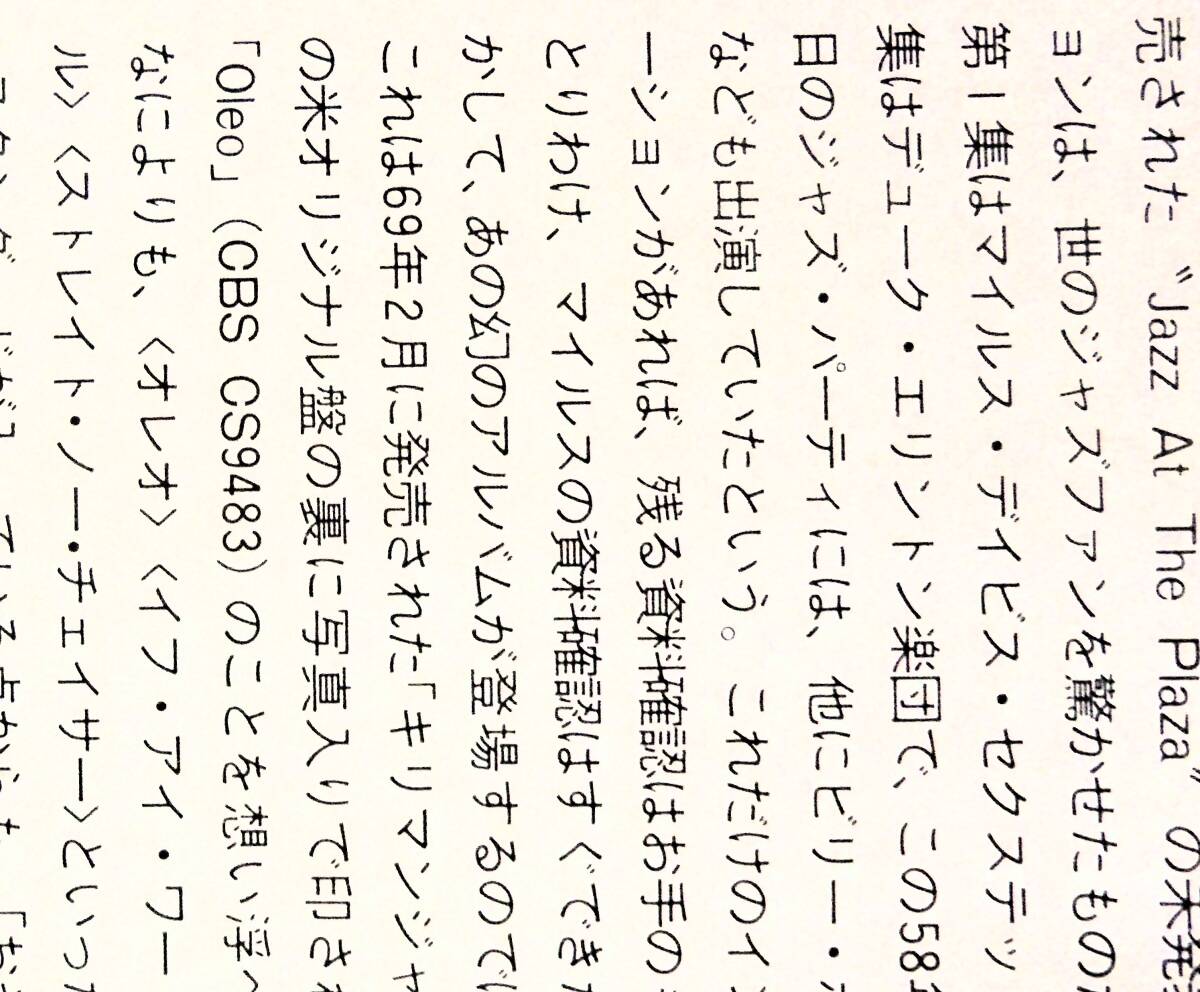 売された “Jazz At The Plaza” の未発
ョンは、世のジャズファンを驚かせたもの
第1集はマイルス・デイビス・セクステッ
集はデューク・エリントン楽団で、この58年
日のジャズ・パーティには、他にビリー・
なども出演していたという。これだけのイ
ーションがあれば、残る資料確認はお手の
とりわけ、マイルスの資料確認はすぐでき
かして、あの幻のアルバムが登場するので
これは69年2月に発売された「キリマンジャ
の米オリジナル盤の裏に写真入りで印され
「Oleo」(CBS CS9483) のことを想い浮べ
なによりも、〈オレオ〉〈イフ・アイ・ワー
ル〉〈ストレイト・ノー・チェイサー〉といった